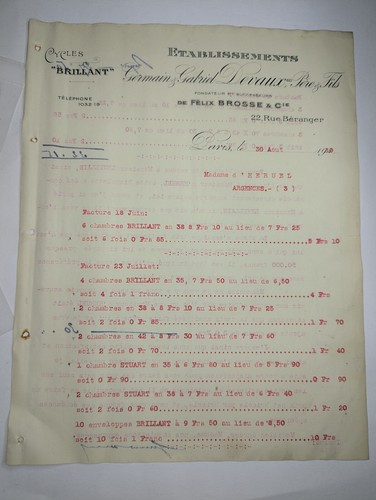 CYCLES
"BRILLANT"
ETABLISSEMENTS
Germain & Gabriel Devaux Père & Fils
FONDATEUR ET SUCCESSEURS
DE FÉLIX BROSSE & Cie
TÉLÉPHONE
22, Rue Béranger
Paris, le 30 Aout
Madame d' HERUEL
ARGENCES,- (3)
Facture 18 Juin:
6 chambres BRILLANT en 38 à Frs 10 au lieu de 7 Frs 25
soit 6 fois 0 Frs 85 5 Frs 10
Facture 23 Juillet:
4 chambres BRILLANT en 35, 7 Frs 50 au lieu de 6,50
soit 4 fois 1 franc 4 Frs
2 chambres en 38 à 8 Frs 10 au lieu de 7 Frs 25
soit 2 fois 0 Fr 85 1 Fr 70
2 chambres en 42 à 8 Frs 30 au lieu de 7 Frs 60
soit 2 fois 0 Fr 70 1 Fr 40
1 chambre STUART en 35 à 6 Frs 80 au lieu de 5 Frs 90
soit 0 Fr 90 0 Fr 90
2 chambres STUART en 38 à 7 Frs au lieu de 6 Frs 40
soit 2 fois 0 Fr 60 1 Fr 20
10 enveloppes BRILLANT à 9 Frs 50 au lieu de 8,50
soit 10 fois 1 Franc 10 Frs